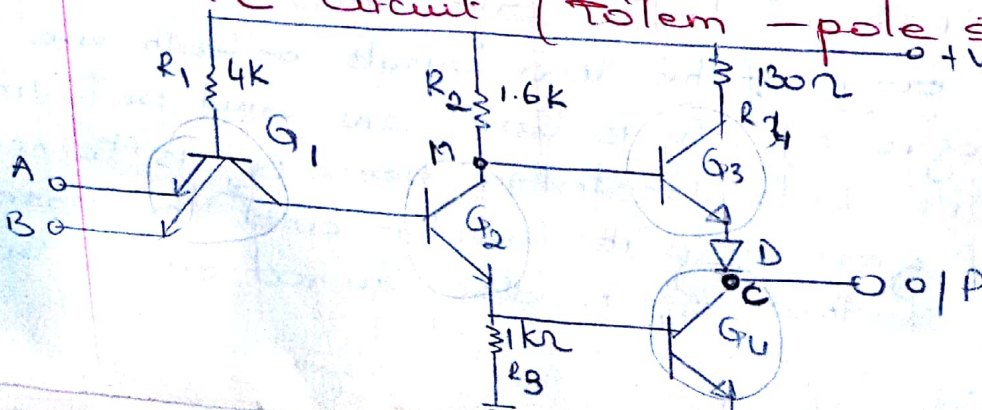 Circuit (Totem -pole
R1 4K
R2 1.6K
130Ω
R4
G1
M
G3
A
B
G2
D
C
O/P
G4
1kΩ
R3